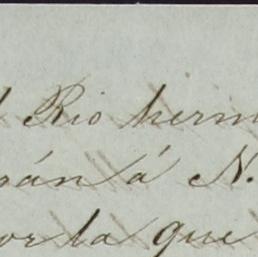 l Rio herm
rán á N.
or la que